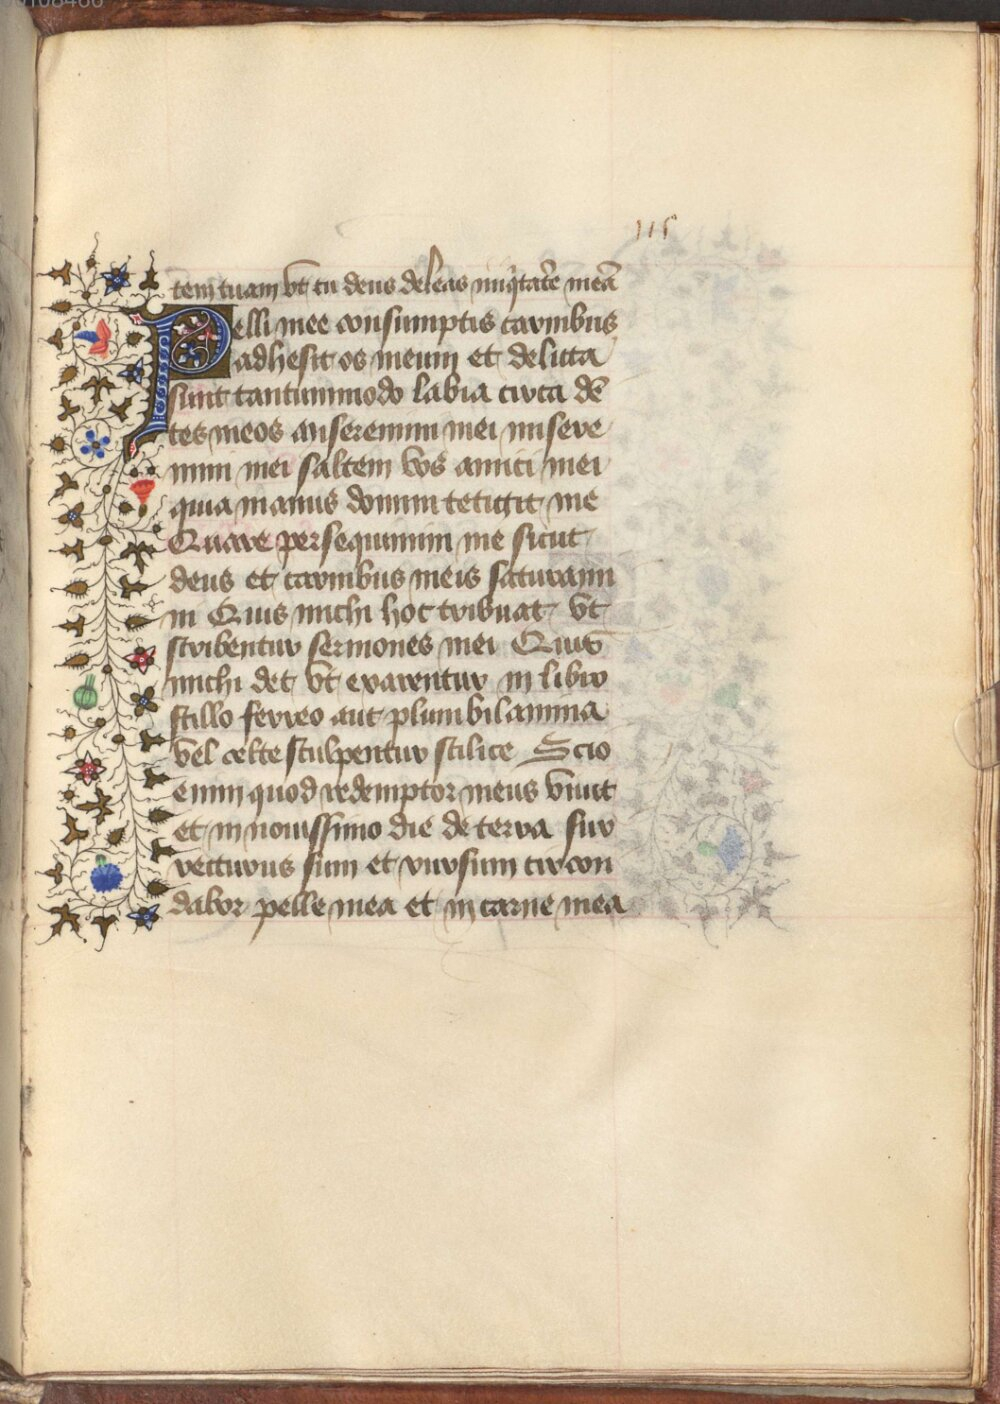 115
tem tuam vt tu deus deleas iniqͥtatē meā
Pelli mee consumptis carnibus
adhesit os meum et delicta
sunt tantummodo labia circa dē
tes meos miseremini mei misere
mini mei saltem vos amici mei
quia manus domini tetigit me
Quare persequimini me sicut
deus et carnibus meis saturami
ni Quis michi hoc tribuat vt
scribentur sermones mei Quis
michi det vt exarentur in libro
stillo ferreo aut plumbi lamina
vel celte sculpentur silice Scio
enim quod redemptor meus viuit
et in nouissimo die de terra sur
recturus sum et rursum circon
dabor pelle mea et in carne mea